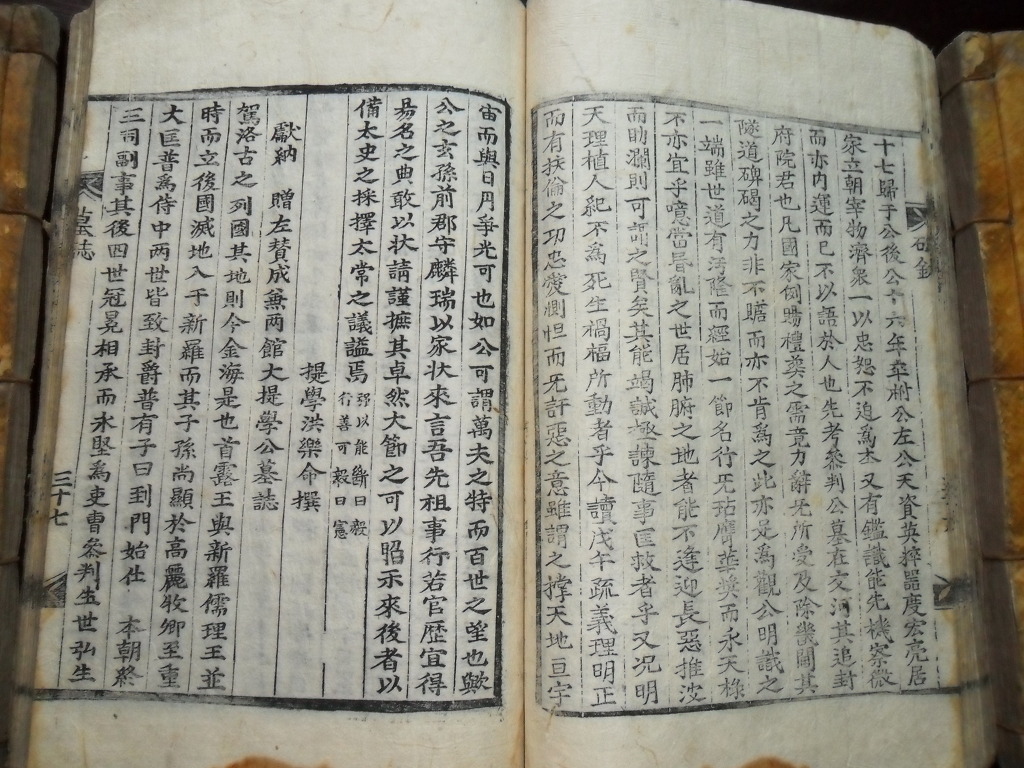 十七歸于公後公十六年卒祔公左公天資英粹器度宏亮居
家立朝宰物濟衆一以忠恕不迫爲本又有鑑識能先機察微
而亦內運而已不以語於人也先考參判公墓在交河其追封
府院君也凡國家例賜禮葬之需竟力辭无所受及除畿閫其
隧道碑碣之力非不贍而亦不肯爲之此亦足爲觀公明識之
一端雖世道有汚隆而經始一節名行旡玷膺華奬而永天祿
不亦宜乎噫當昏亂之世居肺腑之地者能不逢迎長惡推波
而助瀾則可謂之賢矣其能竭誠極諫隨事匡救者乎又况明
天理植人紀不為死生禍福所動者乎今讀戊午疏義理明正
而有扶倫之功忠愛惻怛而旡訐惡之意雖謂之撑天地亘宇
宙而與日月爭光可也如公可謂萬夫之特而百世之望也歟
公之玄孫前郡守麟瑞以家狀來言吾先祖事行若官歷宜得
易名之典敢以狀請謹摭其卓然大節之可以昭示來後者以
備太史之採擇太常之議謚焉 强以能斷曰毅 行善可毅曰憲
提學洪樂命撰
獻納 贈左賛成兼兩館大提學公墓誌
駕洛古之列國其地則今金海是也首露王與新羅儒理王並
時而立後國滅地入于新羅而其子孫尚顯於高麗牧卿至重
大匡普爲侍中兩世皆致封爵普有子曰到門始仕 本朝終
三司副事其後四世冠冕相承而永堅爲吏曹參判生世弘生
墓誌
三十七